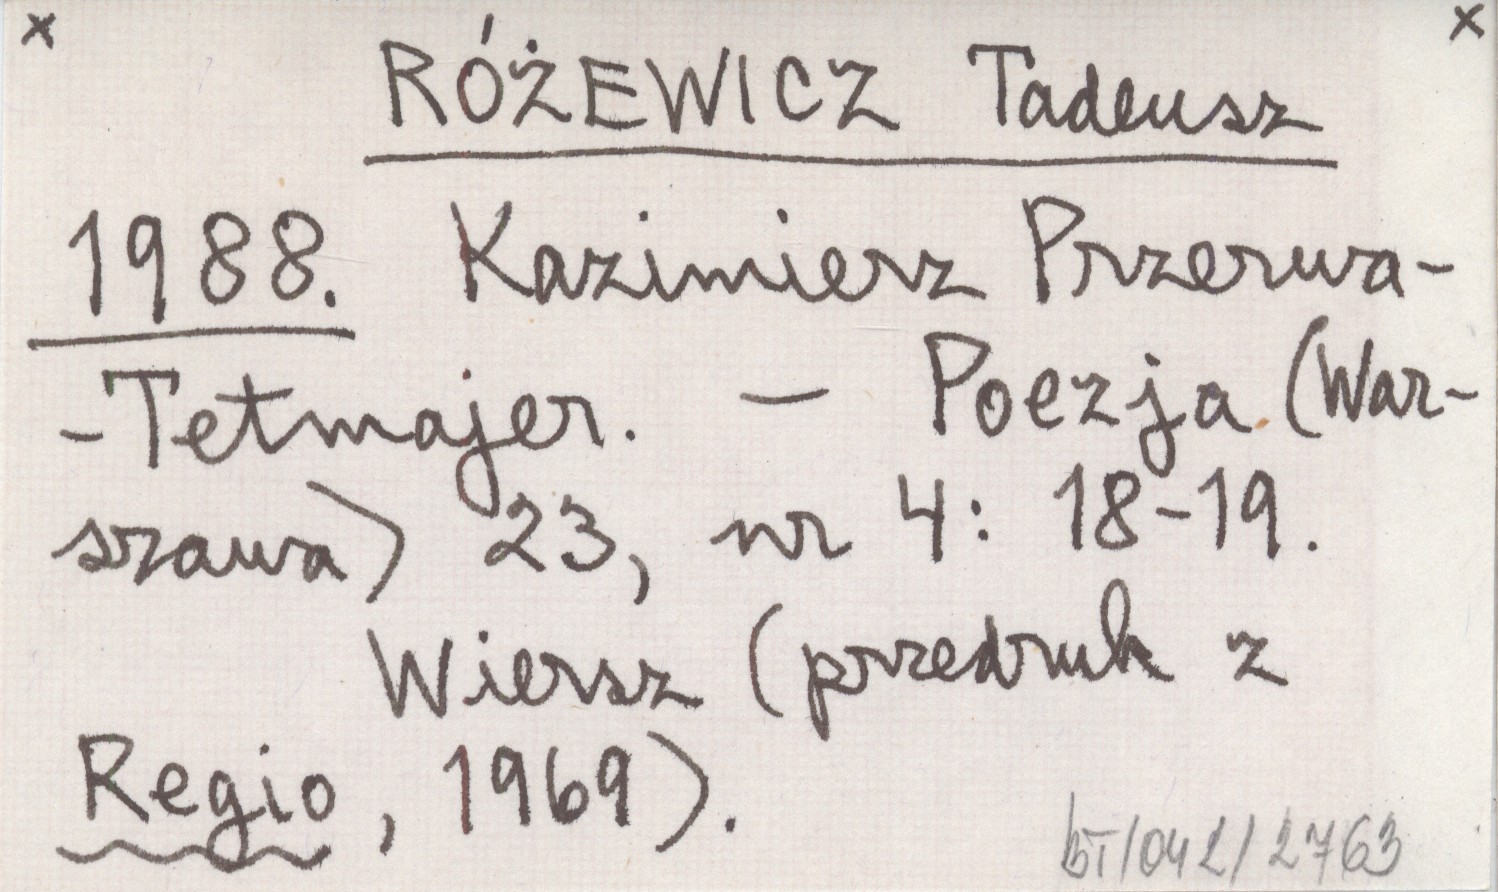 x x
RÓŻEWICZ Tadeusz
1988. Kazimierz Przerwa-
-Tetmajer. — Poezja (War-
szawa) 23, nr 4: 18-19.
Wiersz (przedruk z
Regio, 1969).
BT/042/2763